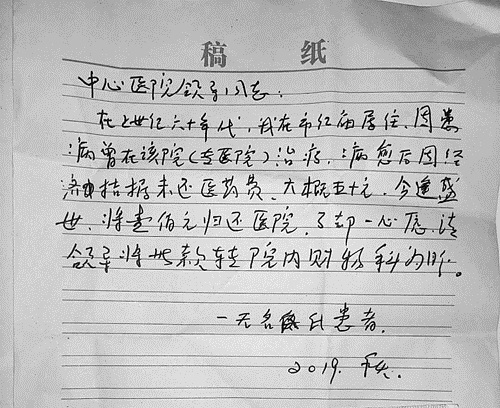 稿纸
中心医院领导同志:
在上世纪六十年代,我在市红庙居住,因患
病曾在该院(专医院)治疗,病愈后因经
济拮据未还医药费,大概五十元,今逢盛
世,将壹佰元归还医院,了却一心愿,请
领导将此款转院内财务科为盼。
一无名氏患者.
2019.秋.